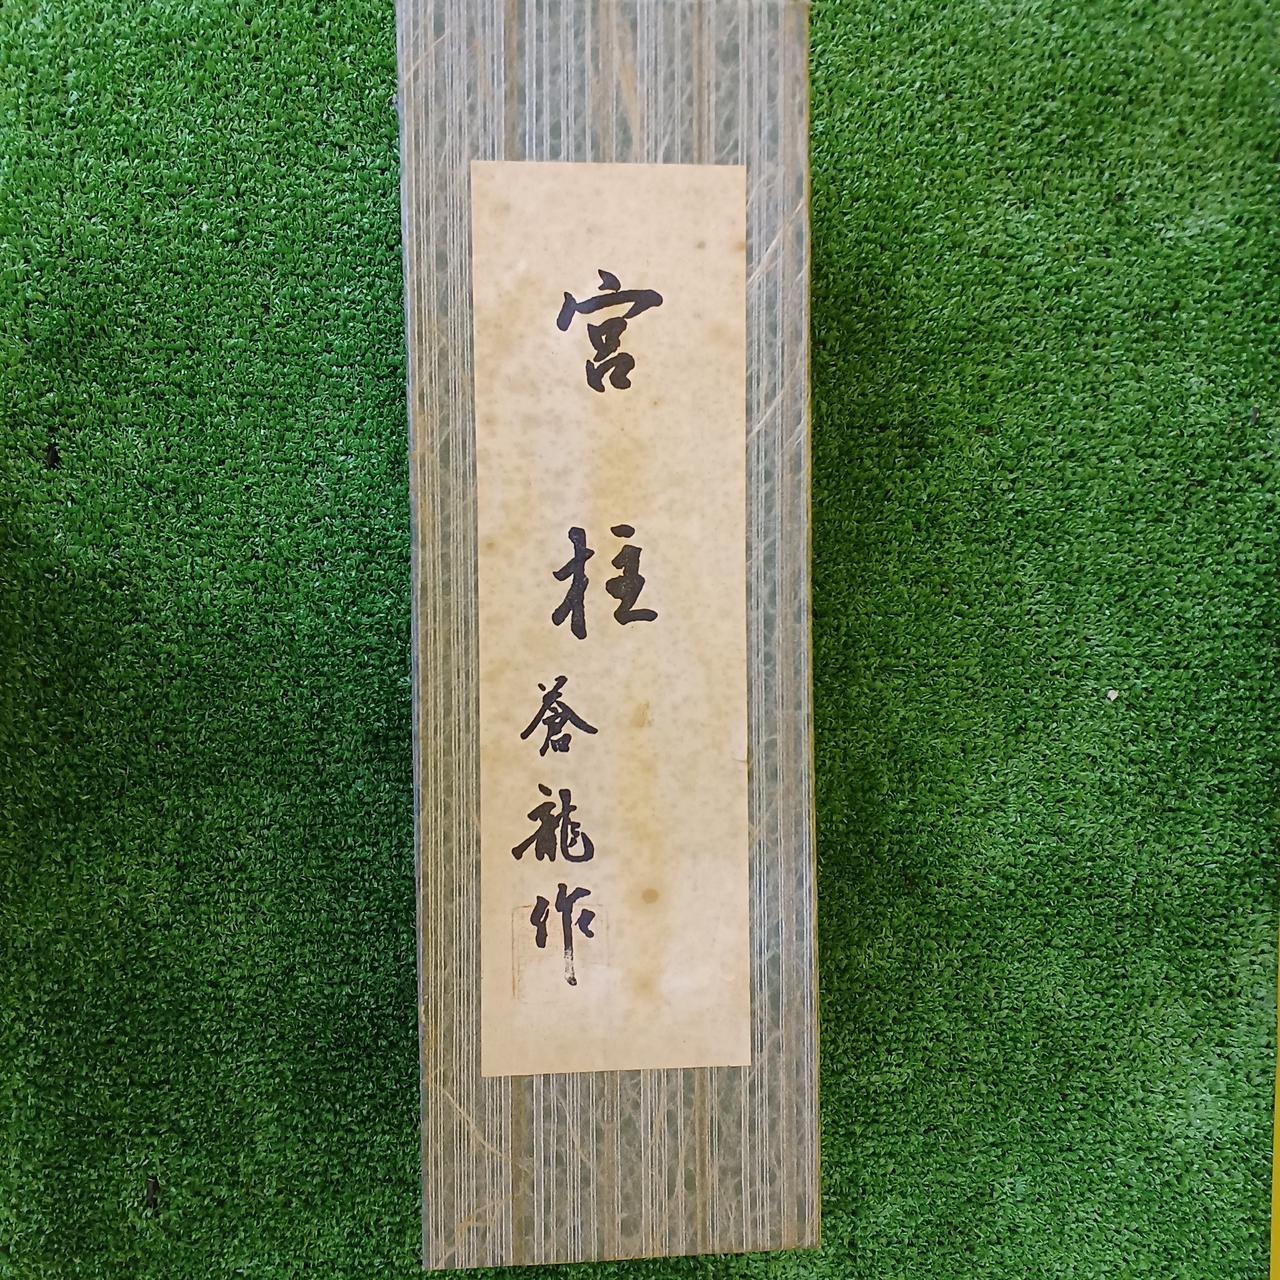 宮柱
蒼龍作